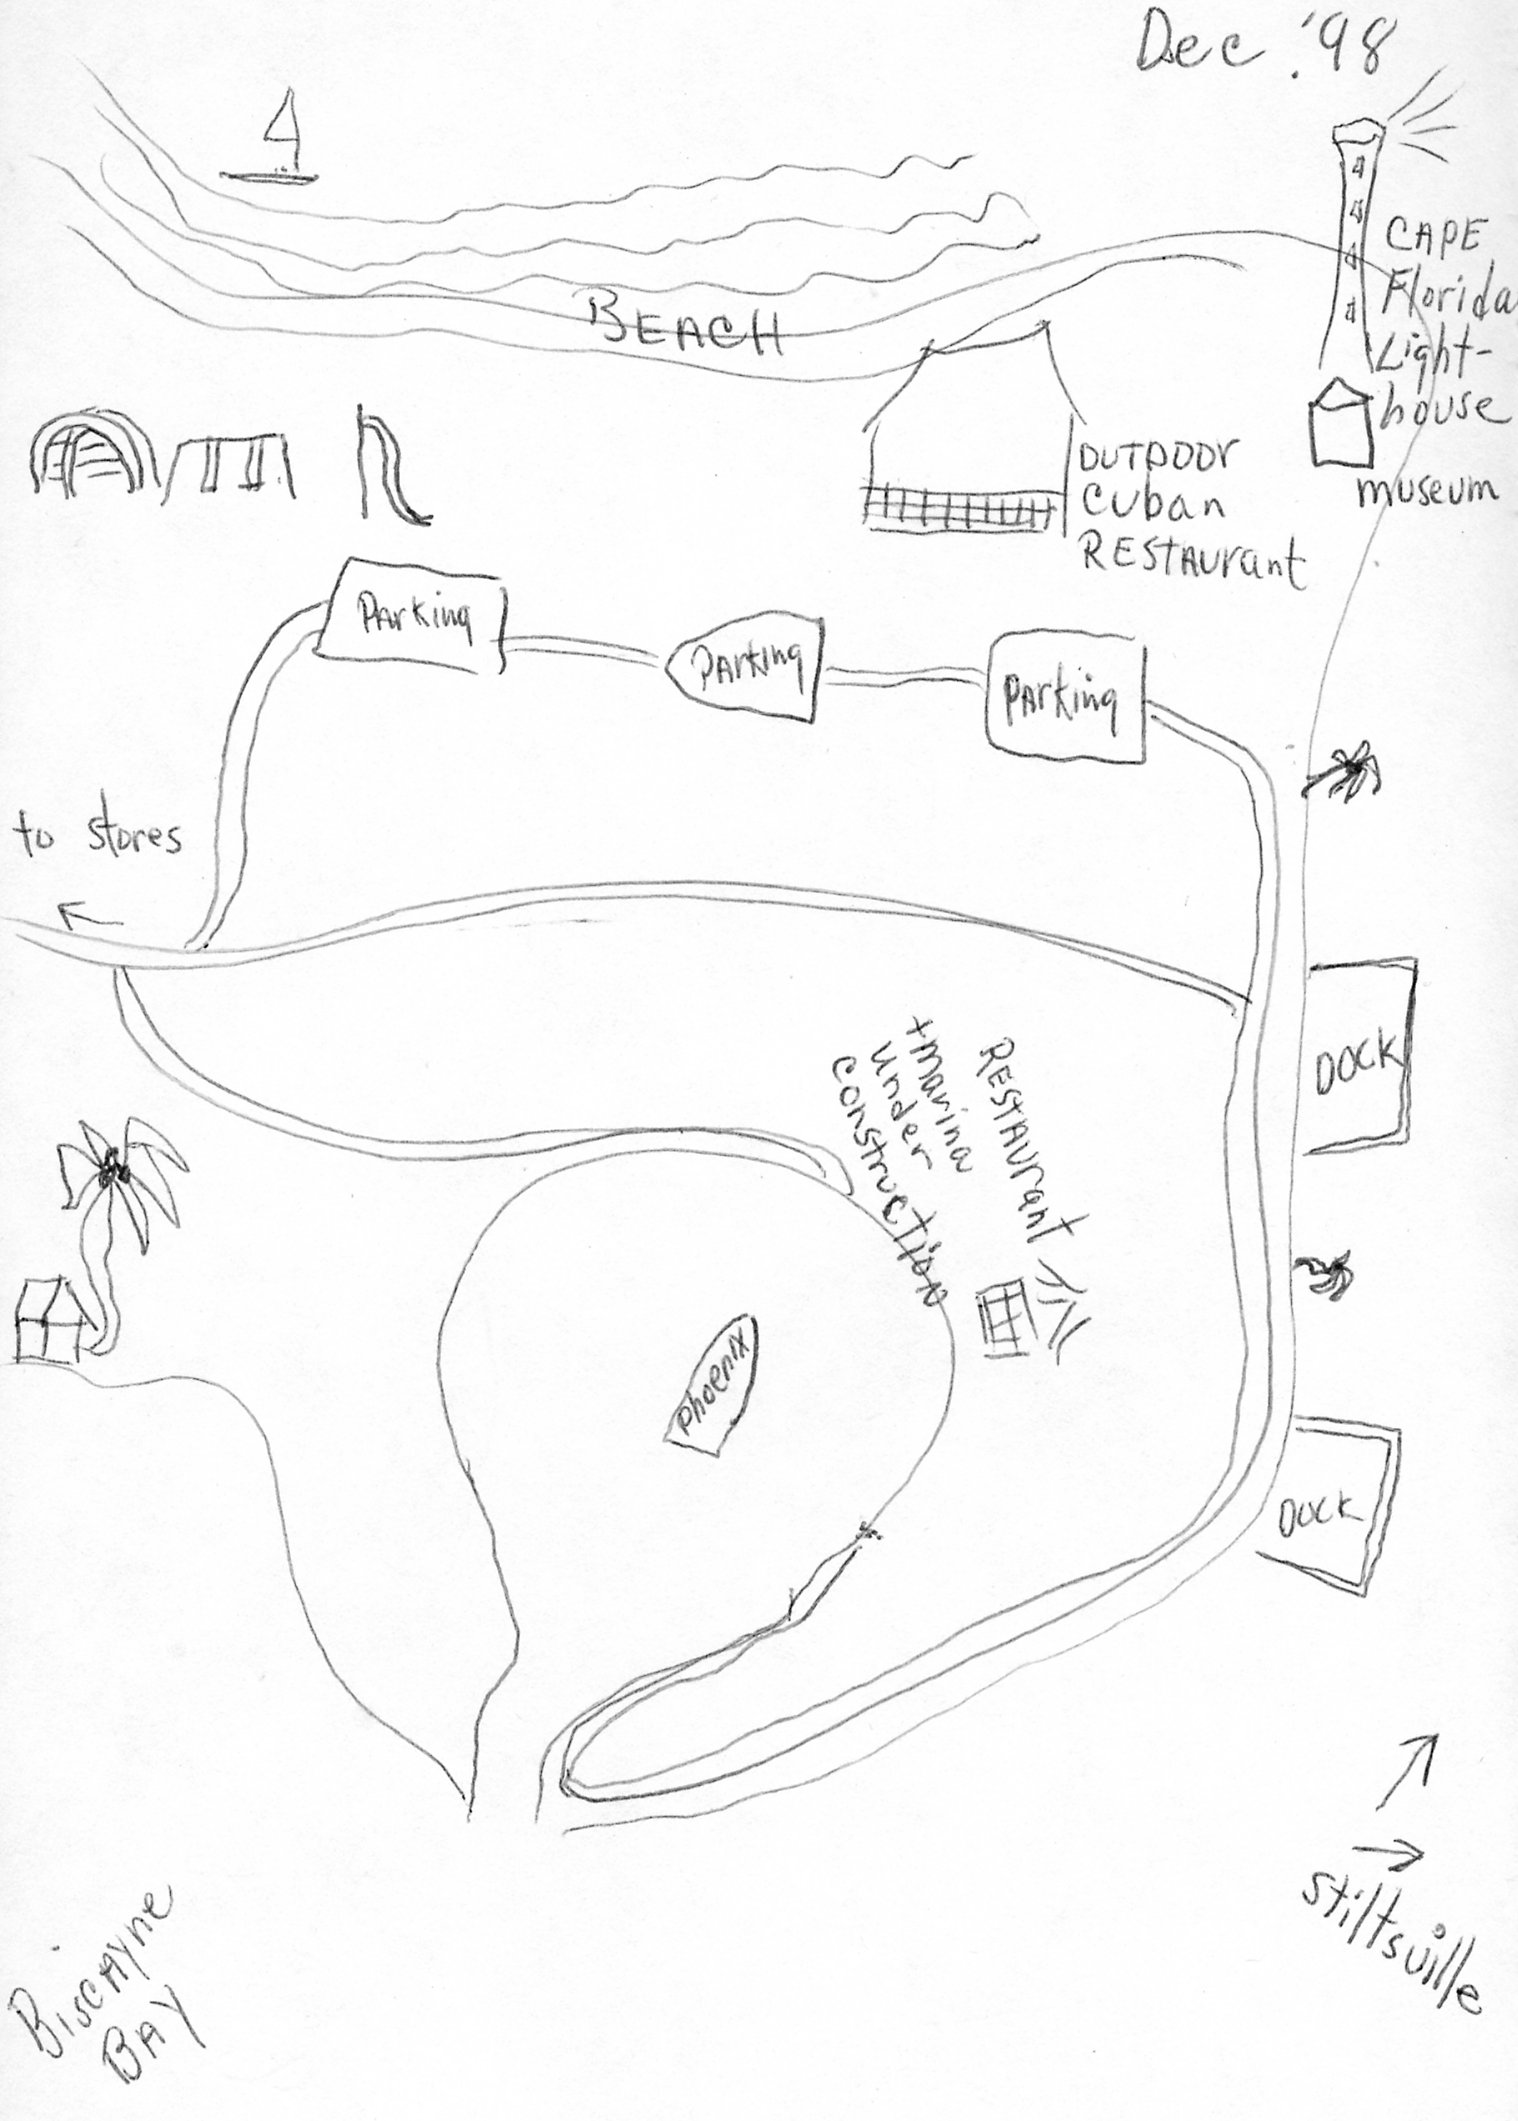 Dec. '98
CAPE
Florida
Light-
house
museum
BEACH
OUTDOOR
Cuban
RESTAurant
PArking
PArking
PArking
to stores
RESTAurant
+marina
under
construction
DOCK
Phoenix
DOCK
Stiltsville
BiscAyne
BAY